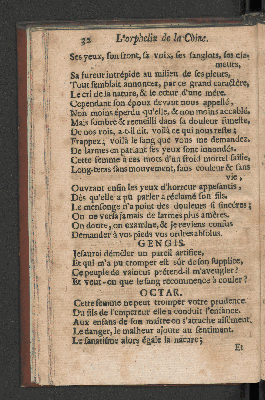 32 L'orphelin de la Chine.
Ses yeux, son front, sa voix, ses sanglots, ses cla-
meurs,
Sa fureur intrépide au milieu de ses pleurs,
Tout semblait annoncer, par ce grand caractère,
Le cri de la nature, & le cœur d'une mère.
Cependant son époux devant nous appellé,
Non moins éperdu qu'elle, & non moins accablé,
Mais sombre & recueilli dans sa douleur funeste,
De nos rois, a-t-il dit, voilà ce qui nous reste;
Frappez; voilà le sang que vous me demandez.
De larmes en parlant ses yeux sont inondés.
Cette femme à ces mots d'un froid mortel saisie,
Long-tems sans mouvement, sans couleur & sans
vie,
Ouvrant enfin les yeux d'horreur appesantis,
Dès qu'elle a pu parler a réclamé son fils.
Le mensonge n'a point des douleurs si sincères;
On ne versa jamais de larmes plus amères.
On doute, on examine, & je reviens confus
Demander à vos pieds vos ordres absolus.
GENGIS.
Je saurai démêler un pareil artifice,
Et qui m'a pu tromper est sûr de son supplice,
Ce peuple de vaincus prétend-il m'aveugler?
Et veut-on que le sang recommence à couler?
OCTAR.
Cette femme ne peut tromper votre prudence.
Du fils de l'empereur elle a conduit l'enfance.
Aux enfans de son maître on s'attache aisément.
Le danger, le malheur ajoute au sentiment.
Le fanatisme alors égale la nature;
Et